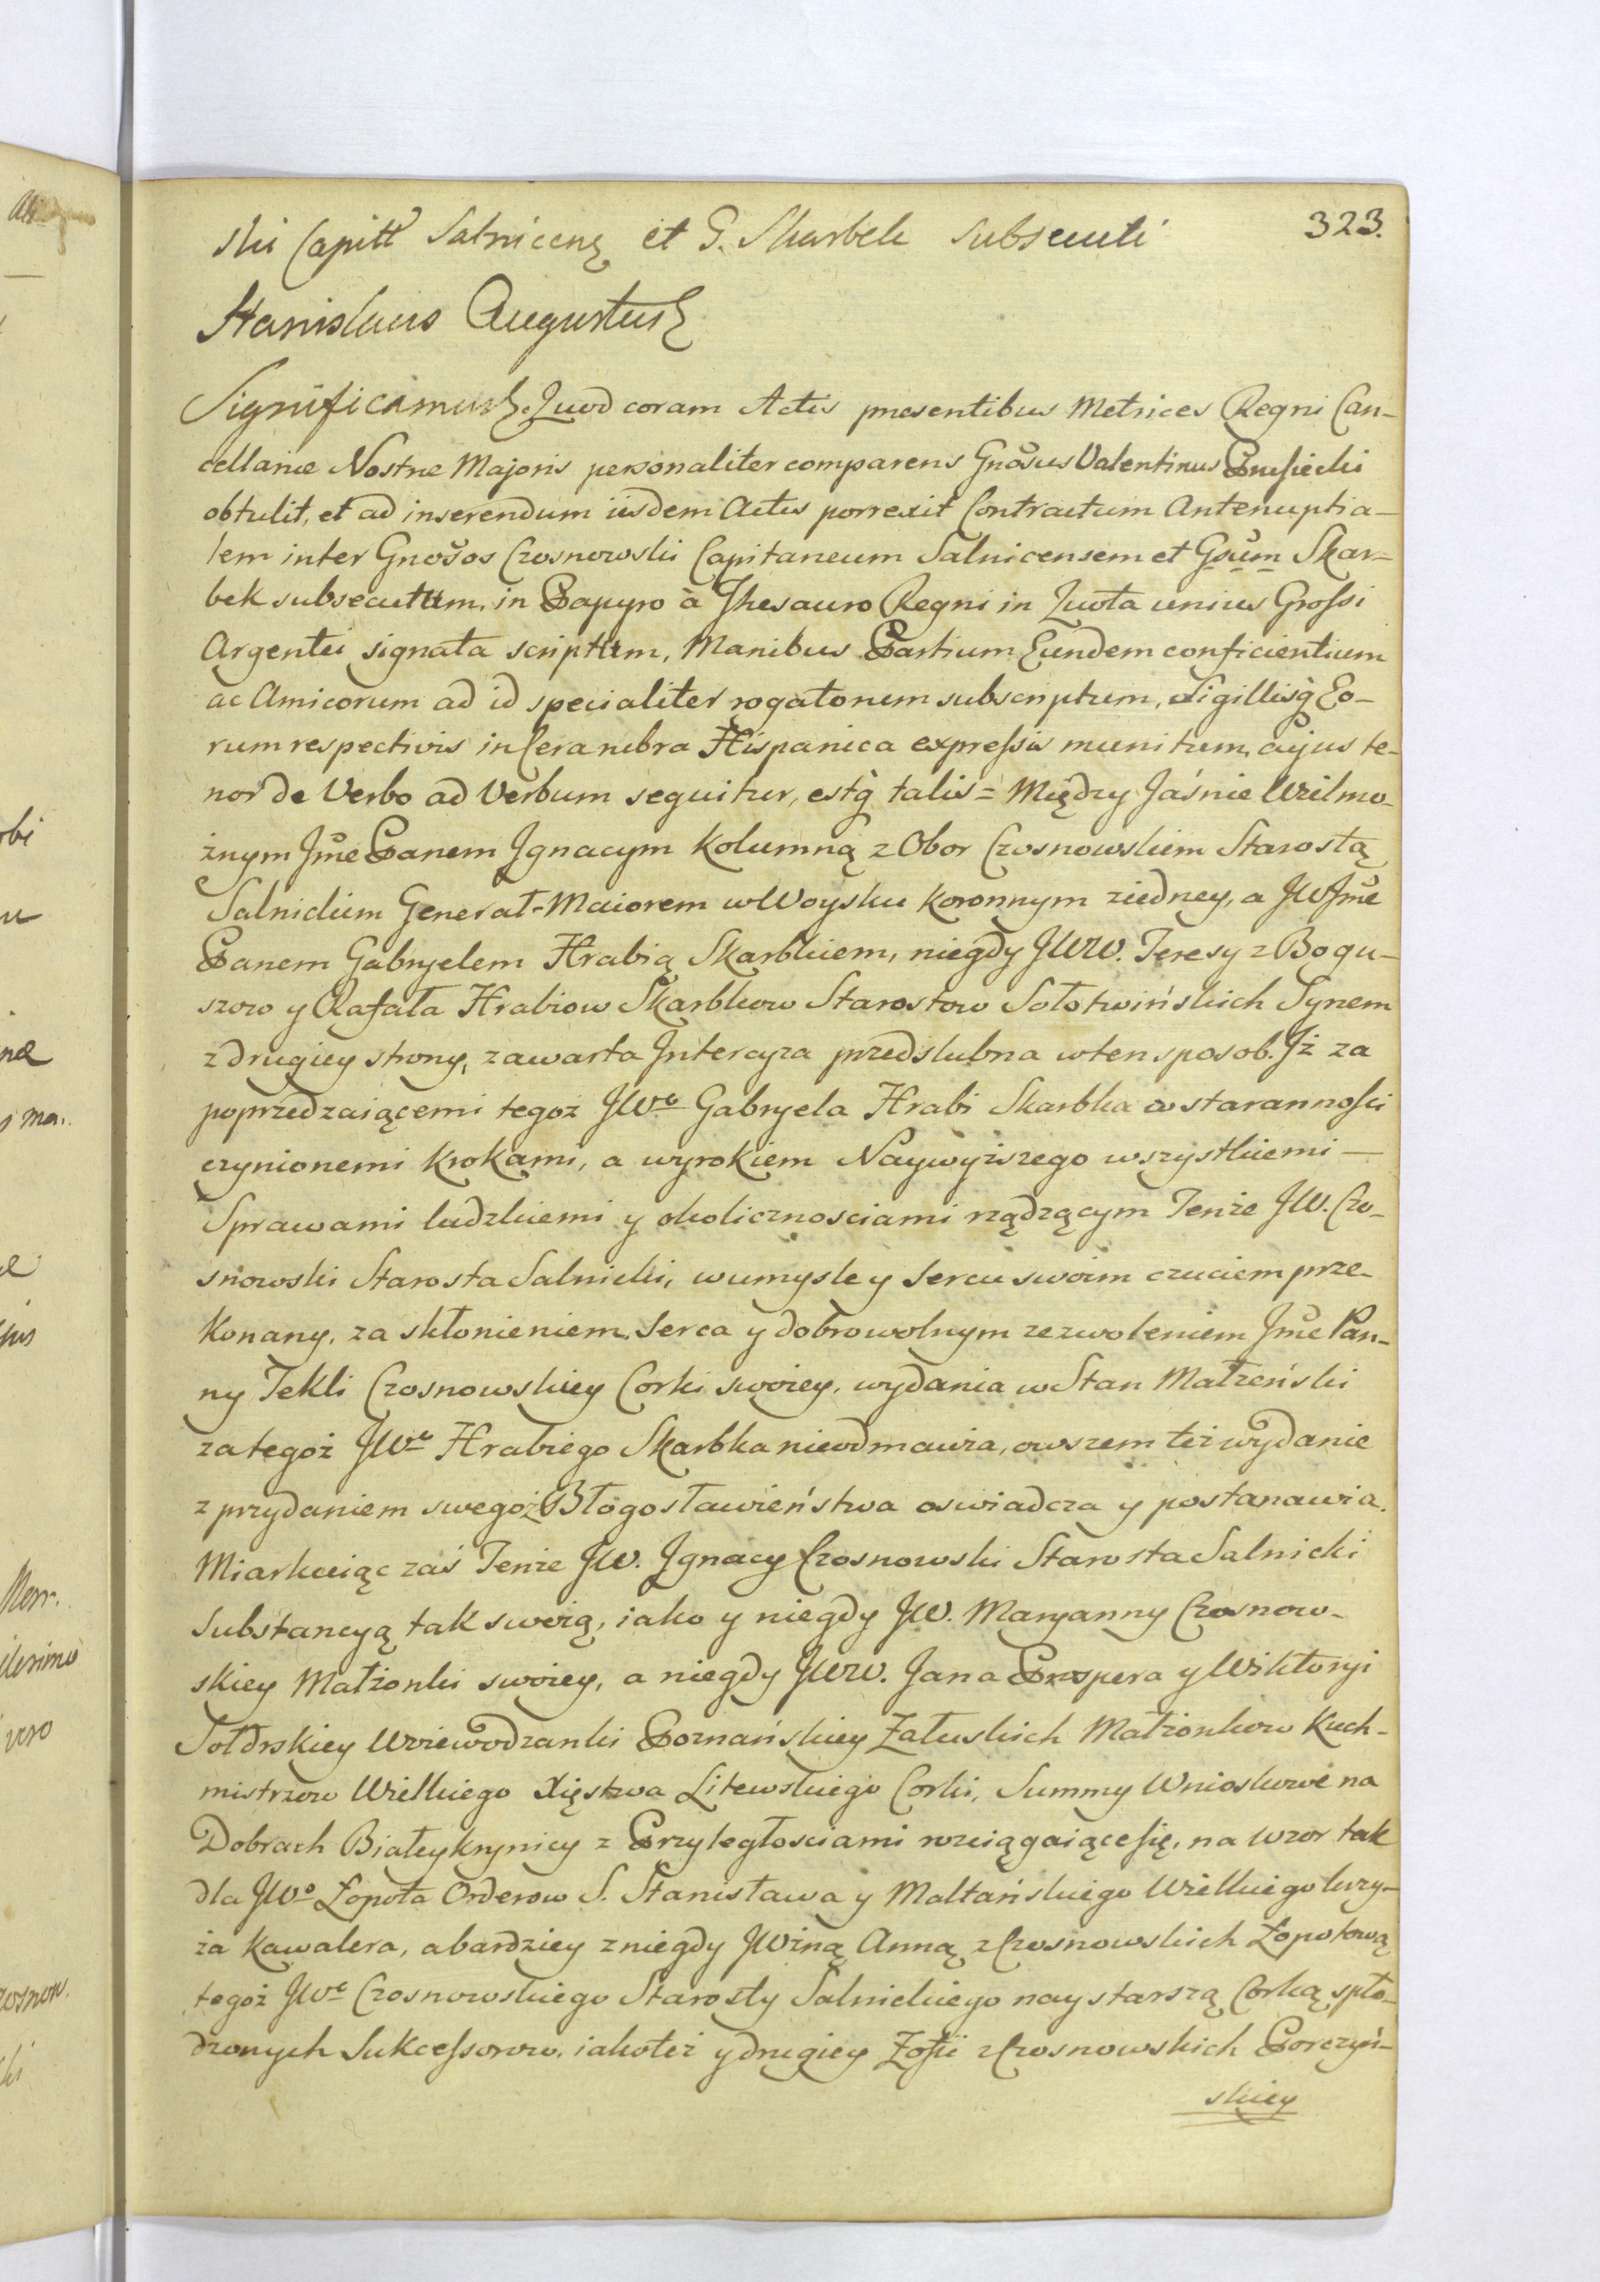 323.
ski Capitt Salnicens et G. Skarbek subsecuti
Stanislaus Augustus
Significamus. Quod coram Actis presentibus Metrices Regni Can-
cellariæ Nostræ Majoris personaliter comparens Gnosus Valentinus
obtulit, et ad inserendum iisdem Actis porrexit Contractum Antenuptia-
lem inter Gnosos Czosnowski Capitaneum Salnicensem et Gsum Skar-
bek subsecutum, in Papyro à Thesauro Regni in Quota unius Grossi
Argentei signata scriptum, Manibus Partium Eundem conficientium
ac Amicorum ad id specialiter rogatorum subscriptum, Sigillisq Eo-
rum respectivis in Cera rubra Hispanica expressis munitum, cujus te-
nor de Verbo ad Verbum sequitur, estq talis = Między Jaśnie Wielmo-
żnym Jmć Panem Jgnacym Kolumną z Obor Czosnowskiem Starostą
Salnickim Generał-Maiorem w Woysku Koronnym ziedney, a JW Jmć
Panem Gabryelem Hrabią Skarbkiem, niegdy JWW. Teresy z Bogu-
szow y Rafała Hrabiow Skarbkow Starostow Sołotwińskich Synem
z drugiey strony, zawarta Jntercyza przedslubna w ten sposob. Jż za
poprzedzaiącemi tegoż JWo Gabryela Hrabi Skarbka o starannosci
czynionemi krokami, a wyrokiem Naywyższego wszystkiemi —
Sprawami ludzkiemi y okolicznosciami rządzącym Tenże JW. Czo-
snowski Starosta Salnicki, w umysle y Sercu swoim czuciem prze-
konany, za skłonieniem Serca y dobrowolnym zezwoleniem Jmć Pan-
ny Tekli Czosnowskiey Corki swoiey, wydania w Stan Małżeński
za tegoż JWo Hrabiego Skarbka nieodmawia, owszem też wydanie
z przydaniem swegoż Błogosławieństwa oswiadcza y postanawia.
Miarkuiąc zaś Tenże JW. Jgnacy Czosnowski Starosta Salnicki
Substancyą tak swoią, iako y niegdy JW. Maryanny Czosnow-
skiey Małżonki swoiey, a niegdy JWW. Jana Prospera y Wiktoryi
Wojewodzanki Poznańskiey Załuskich Małżonkow Kuch-
mistrzow Wielkiego Xięstwa Litewskiego Corki, Summy Wnioskowe na
Dobrach Białeykrynicy z Przyległosciami rozciągaiące się, na wzor tak
dla JWo Łopota Orderow S. Stanisława y Maltańskiego Wielkiego krzy-
ża Kawalera, a bardziey z niegdy JWżną Anną z Czosnowskich Łopotową
tegoż JWo Czosnowskiego Starosty Salnickiego naystarszą Corką spło-
dzonych Sukcessorow, iakoteż y drugiey Zofii z Czosnowskich Porczyń-
skiey